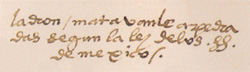 ladron / matavanle a pedra
das segun la ley de los. ss.
de mexico /.